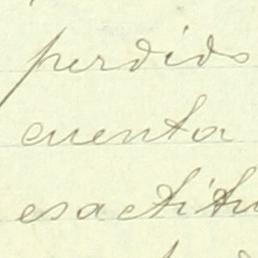 perdido
cuenta
esactitu